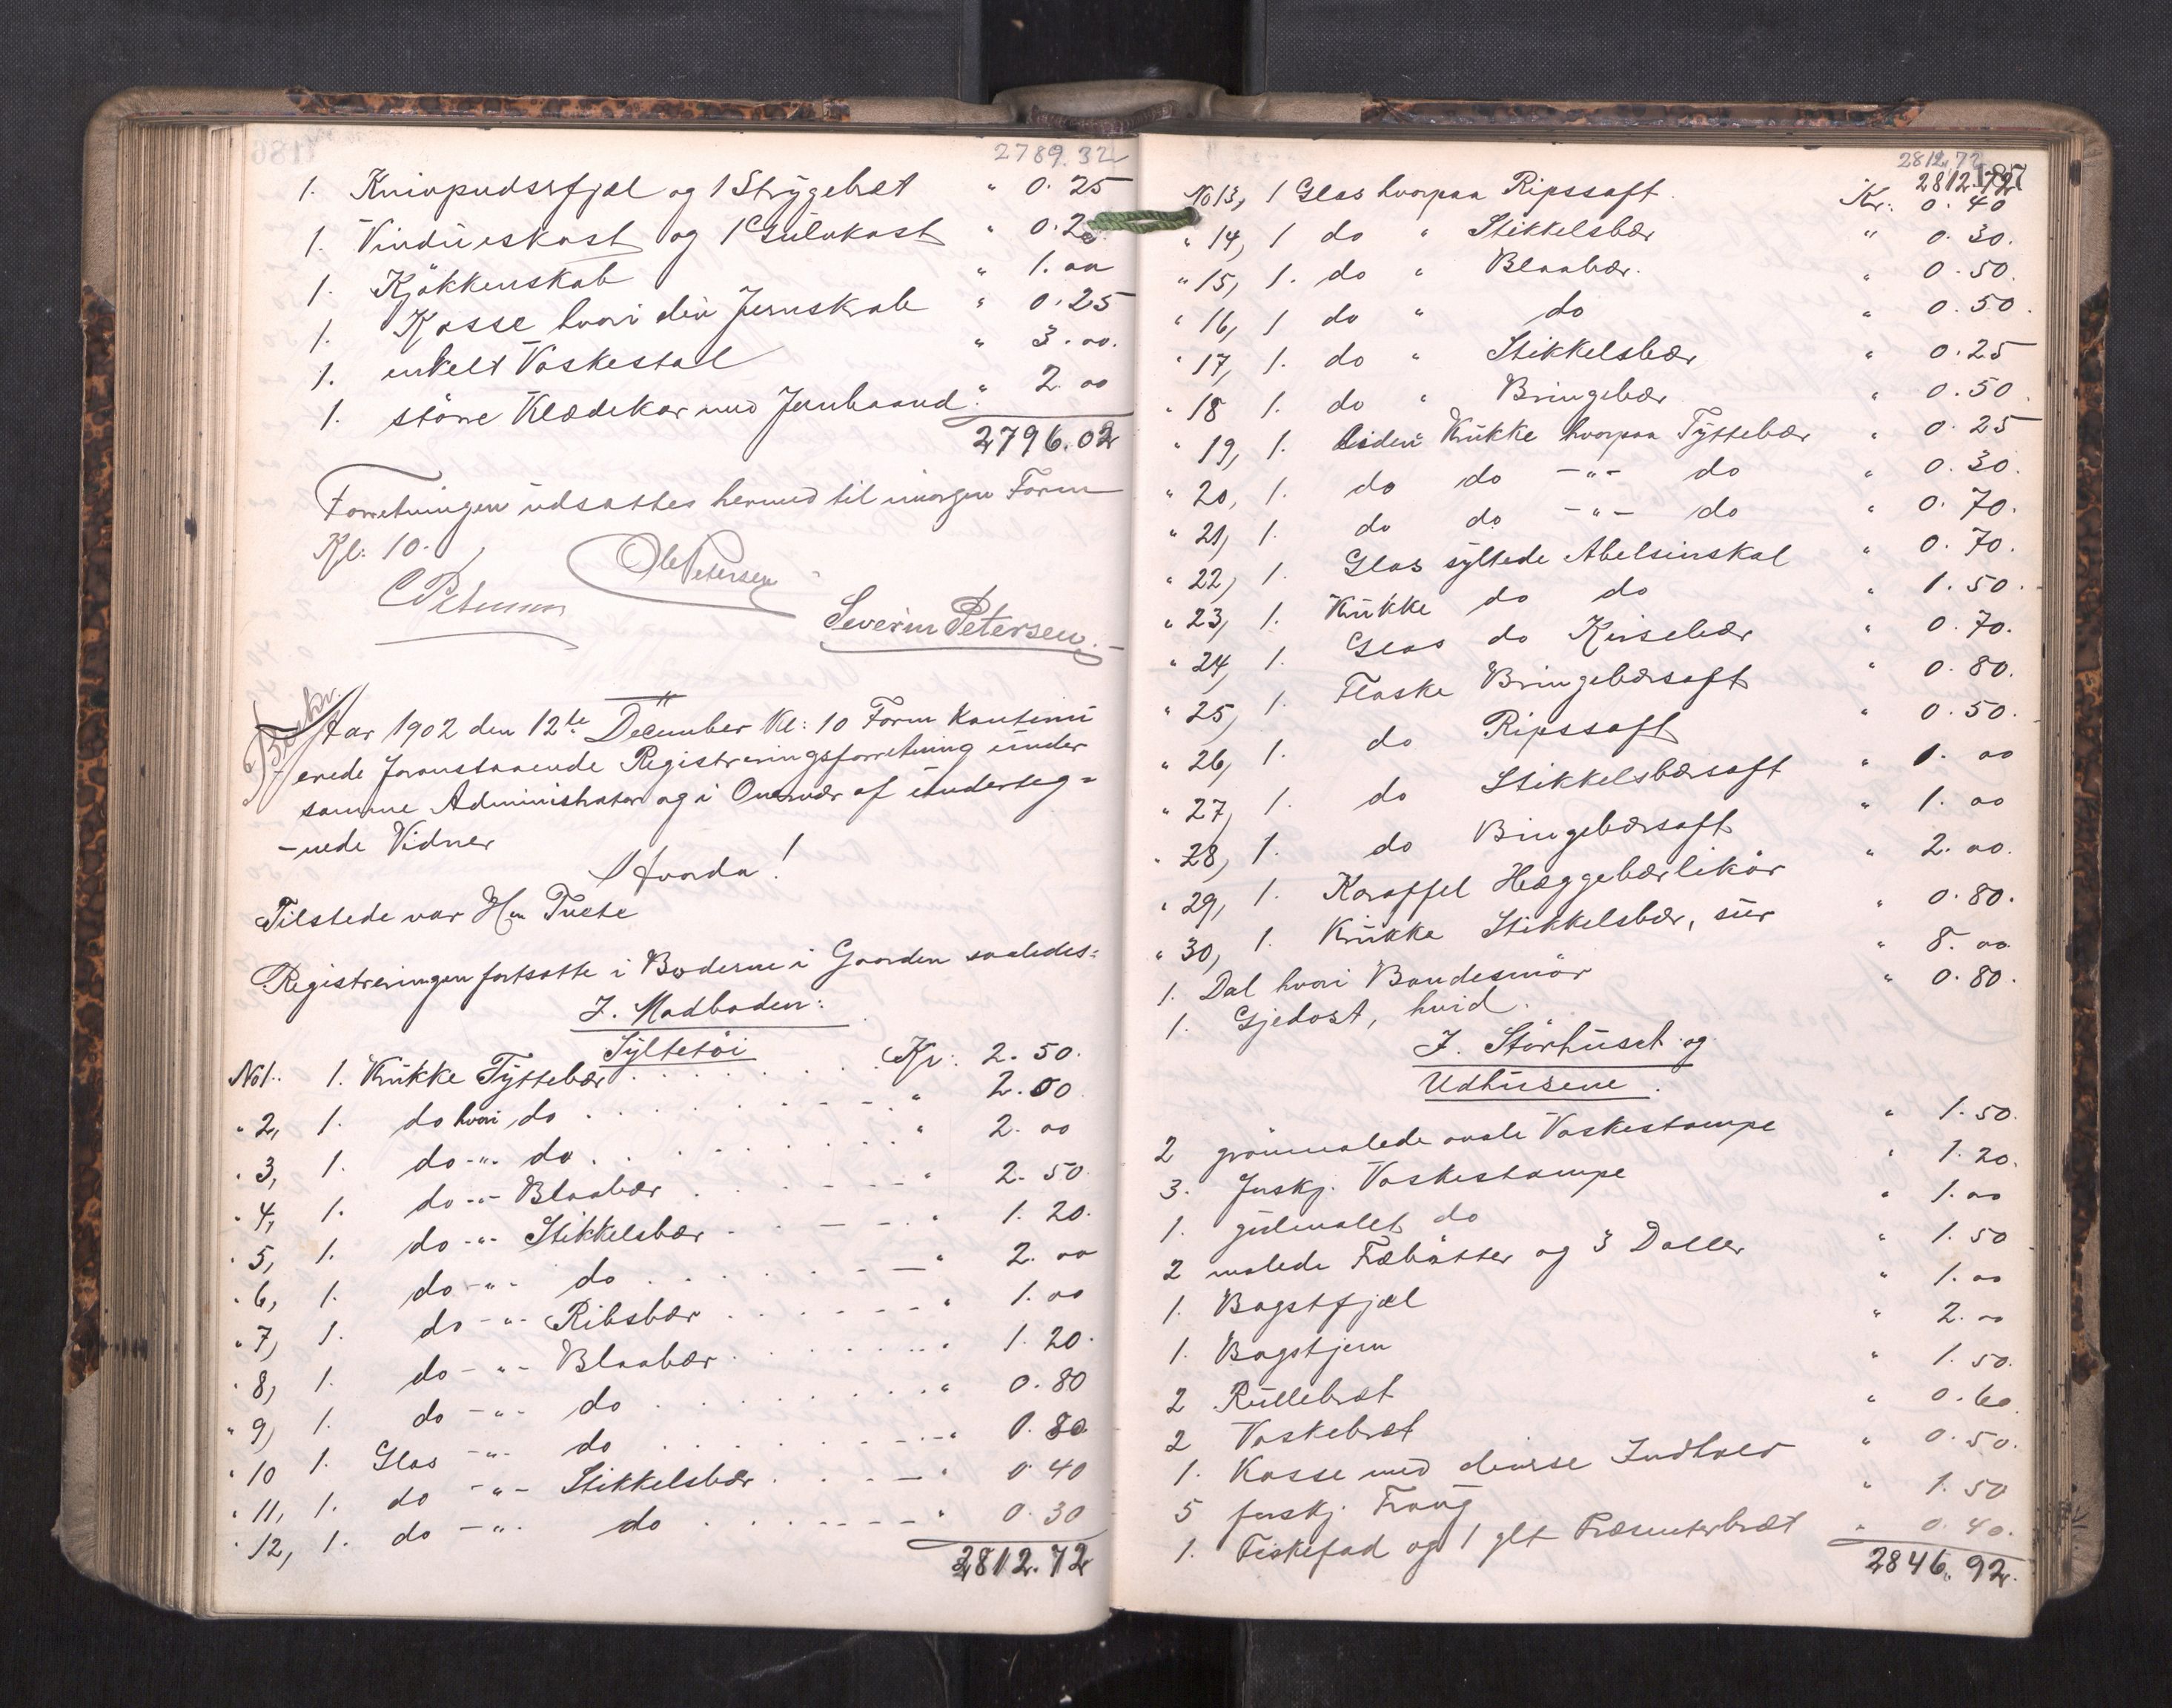 2789.32
1. Knivpudsefjæl og 1 Strygebræt " 0.25
1. Vindueskost og 1 Gulvkost " 0.20
1. Kjökkenskab " 1.00
1. Kasse hvori div Jernskrab " 0.25
1. enkelt Vaskestol " 3.00.
1. större Klædekar med Jernbaand " 2.00
2796.02
Forretningen udsattes hermed til imorgen Form
Kl: 10.
C Petersen Ole Petersen
Severin Petersen.
Aar 1902 den 12te December Kl: 10 Form kontinu
erede foranstaaende Registreringsforretning under
samme Administrator og i Overvær af underteg=
-nede Vidner
Hvorda!
Tilstede var Hr Tvete
Registreringen fortsatte i Boderne i Gaarden saaledes:
I. Madboden:
Syltetöi
No 1. 1. Krukke Tyttebær Kr: 2.50.
" 2, 1. do hvori do " 2.00
" 3, 1. do -"- do " 2.00
" 4, 1. do -"- Blaabær " 2.50.
" 5, 1. do -"- Stikkelsbær " 1.20.
" 6, 1. do -"- do " 2.00
" 7, 1. do -"- Ribsbær " 1.00
" 8, 1. do -"- Blaabær " 1.20.
" 9, 1. do -"- do " 0.80
" 10 1. Glas -"- do " 0.80
" 11, 1. do -"- Stikkelsbær " 0.40
" 12, 1. do -"- do " 0.30
2812.72
2812.72
187
2812.72
No 13, 1 Glas hvorpaa Ripssaft Kr: 0.40
" 14, 1 do " Stikkelsbær " 0.30.
" 15, 1. do " Blaabær. " 0.50.
" 16, 1 do " do " 0.50.
" 17, 1. do " Stikkelsbær " 0.25
" 18 1. do " Bringebær " 0.50.
" 19, 1. liden Krukke hvorpaa Tyttebær " 0.25
" 20, 1. do do -"- do " 0.30.
" 21, 1. do do -"- do " 0.70.
" 22, 1. Glas syltede Abelsinskal " 0.70.
" 23, 1. Krukke do do " 1.50.
" 24, 1. Glas do Kirsebær " 0.70.
" 25, 1. Flaske Bringebærsaft " 0.80.
" 26, 1. do Ripssaft " 0.50.
" 27, 1. do Stikkelsbærsaft " 1.00
" 28, 1. do Bringebærsaft " 1.00
" 29, 1. Karaffel Hæggebærlikör " 2.00.
" 30, 1. Krukke Stikkelsbær, sur " 0.80.
1. Dal hvori Bondesmör " 8.00
1. Gjedost, hvid. " 0.80.
I. Störhuset og
Udhusene.
2 grönmalede ovale Vaskestampe " 1.50.
3. fuskj. Vaskestampe " 1.20.
1. gulmalet do " 1.00
2 malede Træbötter og 3 Daller " 1.50
1. Bagstfjæl " 1.00
1. Bagstjern " 2.00
2 Rullebræt " 1.50.
2 Vaskebræt " 0.60.
1. Kasse med diverse Indhold " 0.50.
5 forskj. Traug " 1.50
1. Fiskefad og 1 glt Præsenterbræt " 0.40.
2846.92.